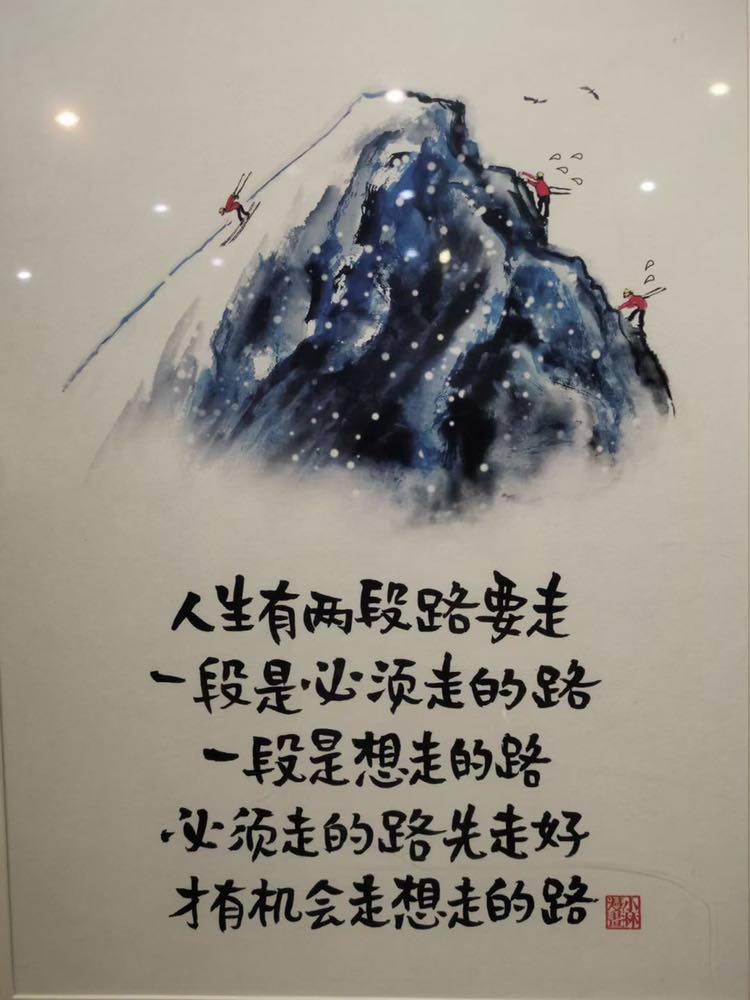 人生有两段路要走
一段是必须走的路
一段是想走的路
必须走的路先走好
才有机会走想走的路
小林漫画